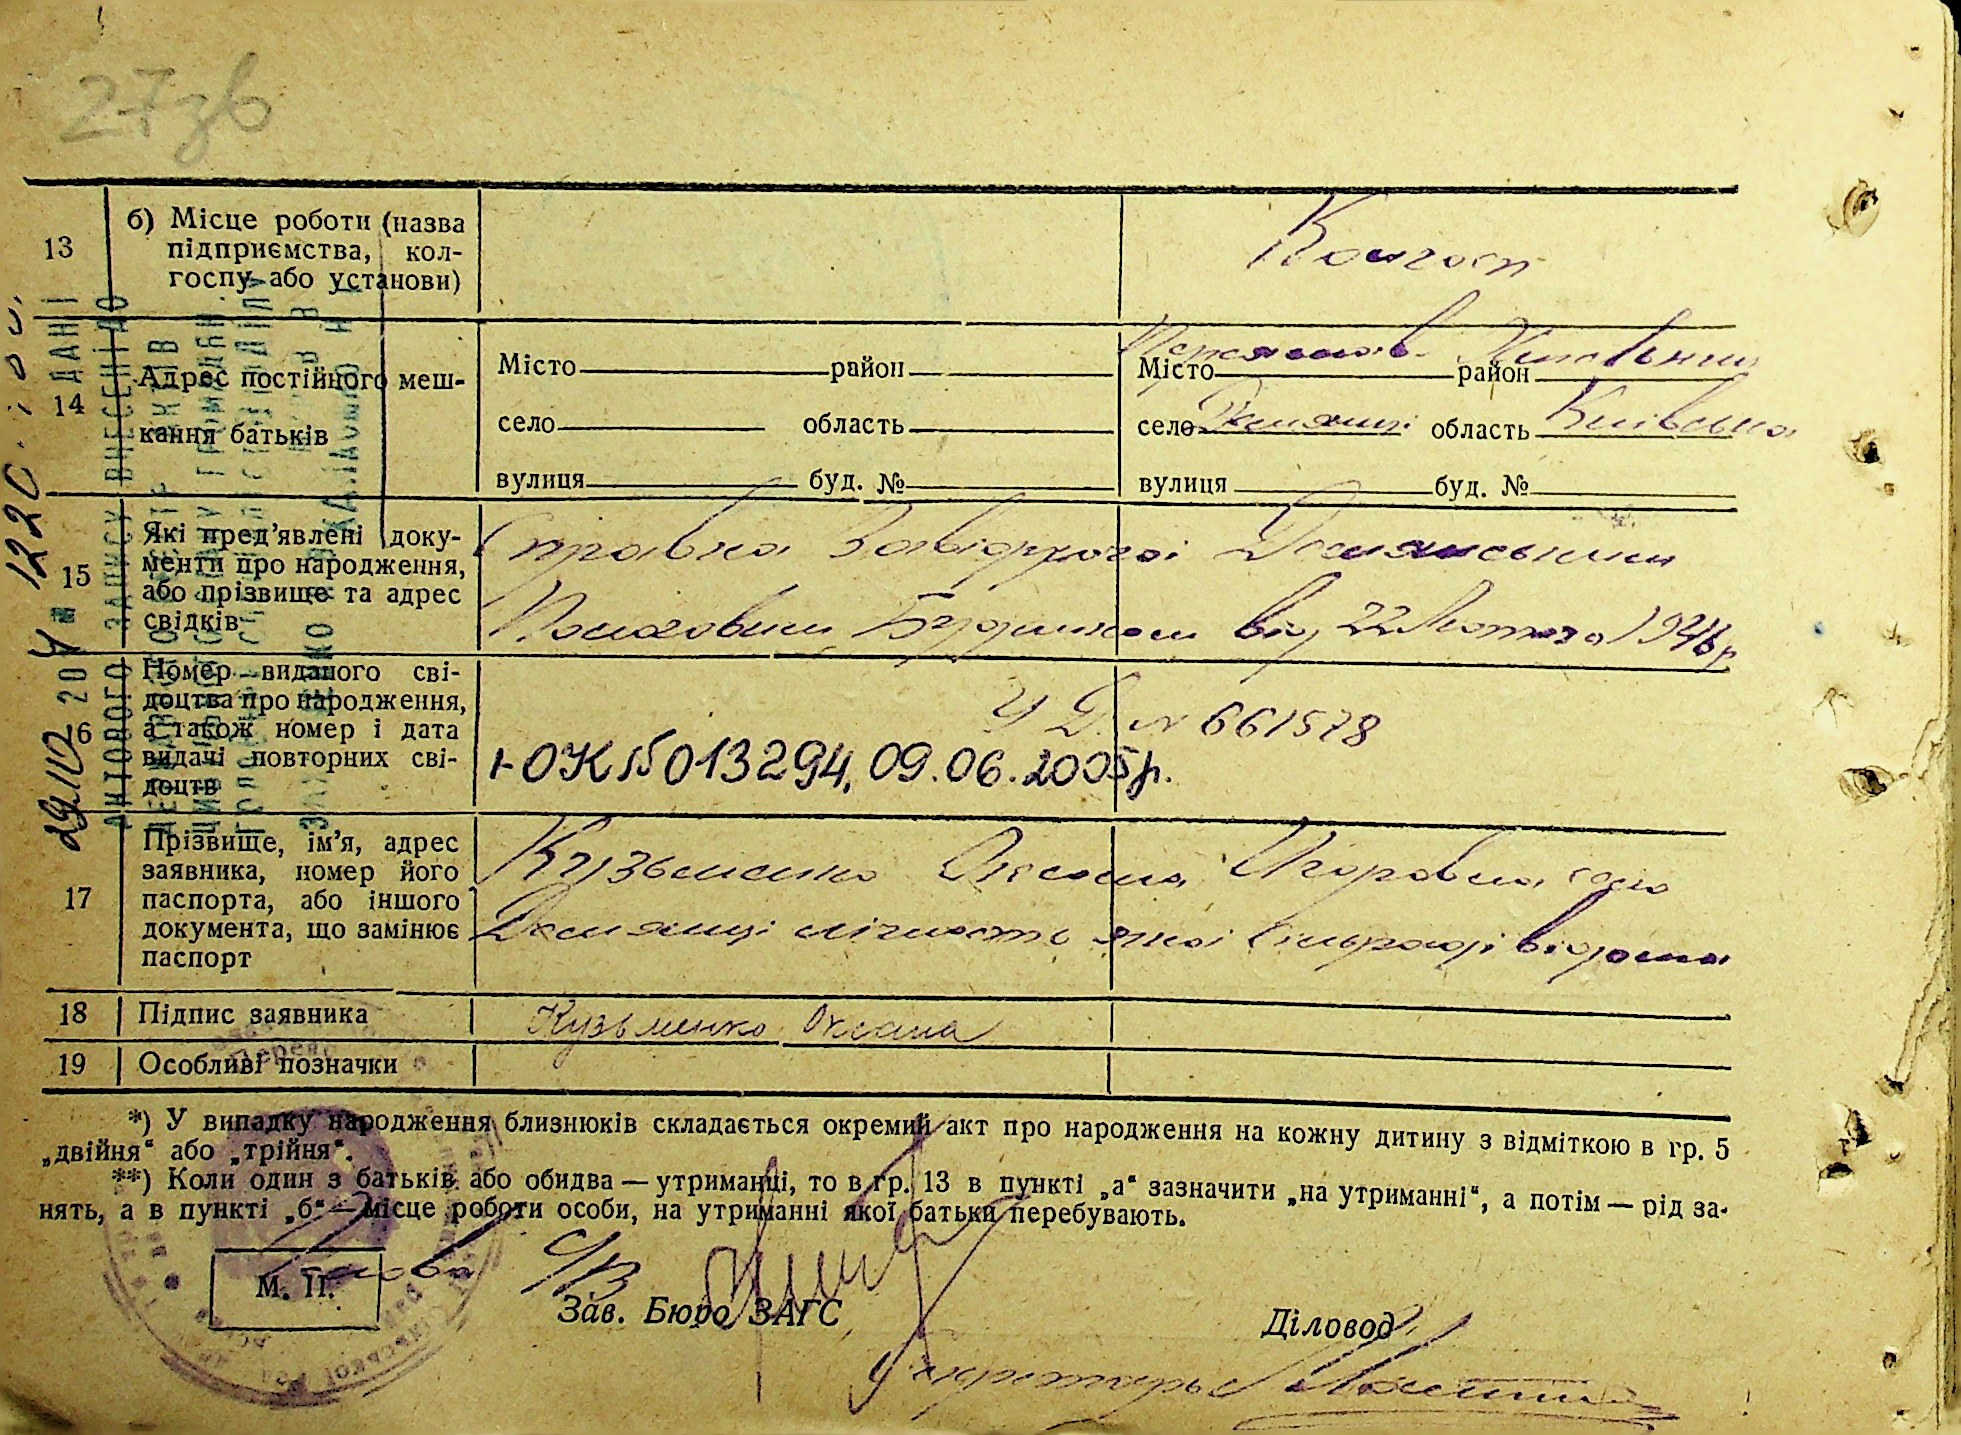 27зв
13
б) Місце роботи (назва
підприємства, кол-
госпу або установи)
Колгосп
14
Адрес постійного меш-
кання батьків
Місто район
село область
вулиця буд. №
Переяслав Хмельниц
Місто район
село Демянці область Київська
вулиця буд. №
15
Які пред'явлені доку-
менти про народження,
або прізвище та адрес
свідків
Справка Завідуючої Демянським
Пологовим Будинком від 22 Лютого 1946 р
16
Номер виданого сві-
доцтва про народження,
а також номер і дата
видачі повторних сві-
доцтв
УД. N 661578
І-ОК №013294, 09.06.2005р.
17
Прізвище, ім'я, адрес
заявника, номер його
паспорта, або іншого
документа, що замінює
паспорт
Кузьменко Оксана Игоровна село
Демянці личность якої сільраді відома
18 Підпис заявника
Кузьменко Оксана
19 Особливі позначки
*) У випадку народження близнюків складається окремий акт про народження на кожну дитину з відміткою в гр. 5
„двійня“ або „трійня“.
**) Коли один з батьків або обидва — утриманці, то в гр. 13 в пункті „а“ зазначити „на утриманні“, а потім — рід за-
нять, а в пункті „б“ — місце роботи особи, на утриманні якої батьки перебувають.
Голова С/В
М. П.
Зав. Бюро ЗАГС
Діловод
Секретарь